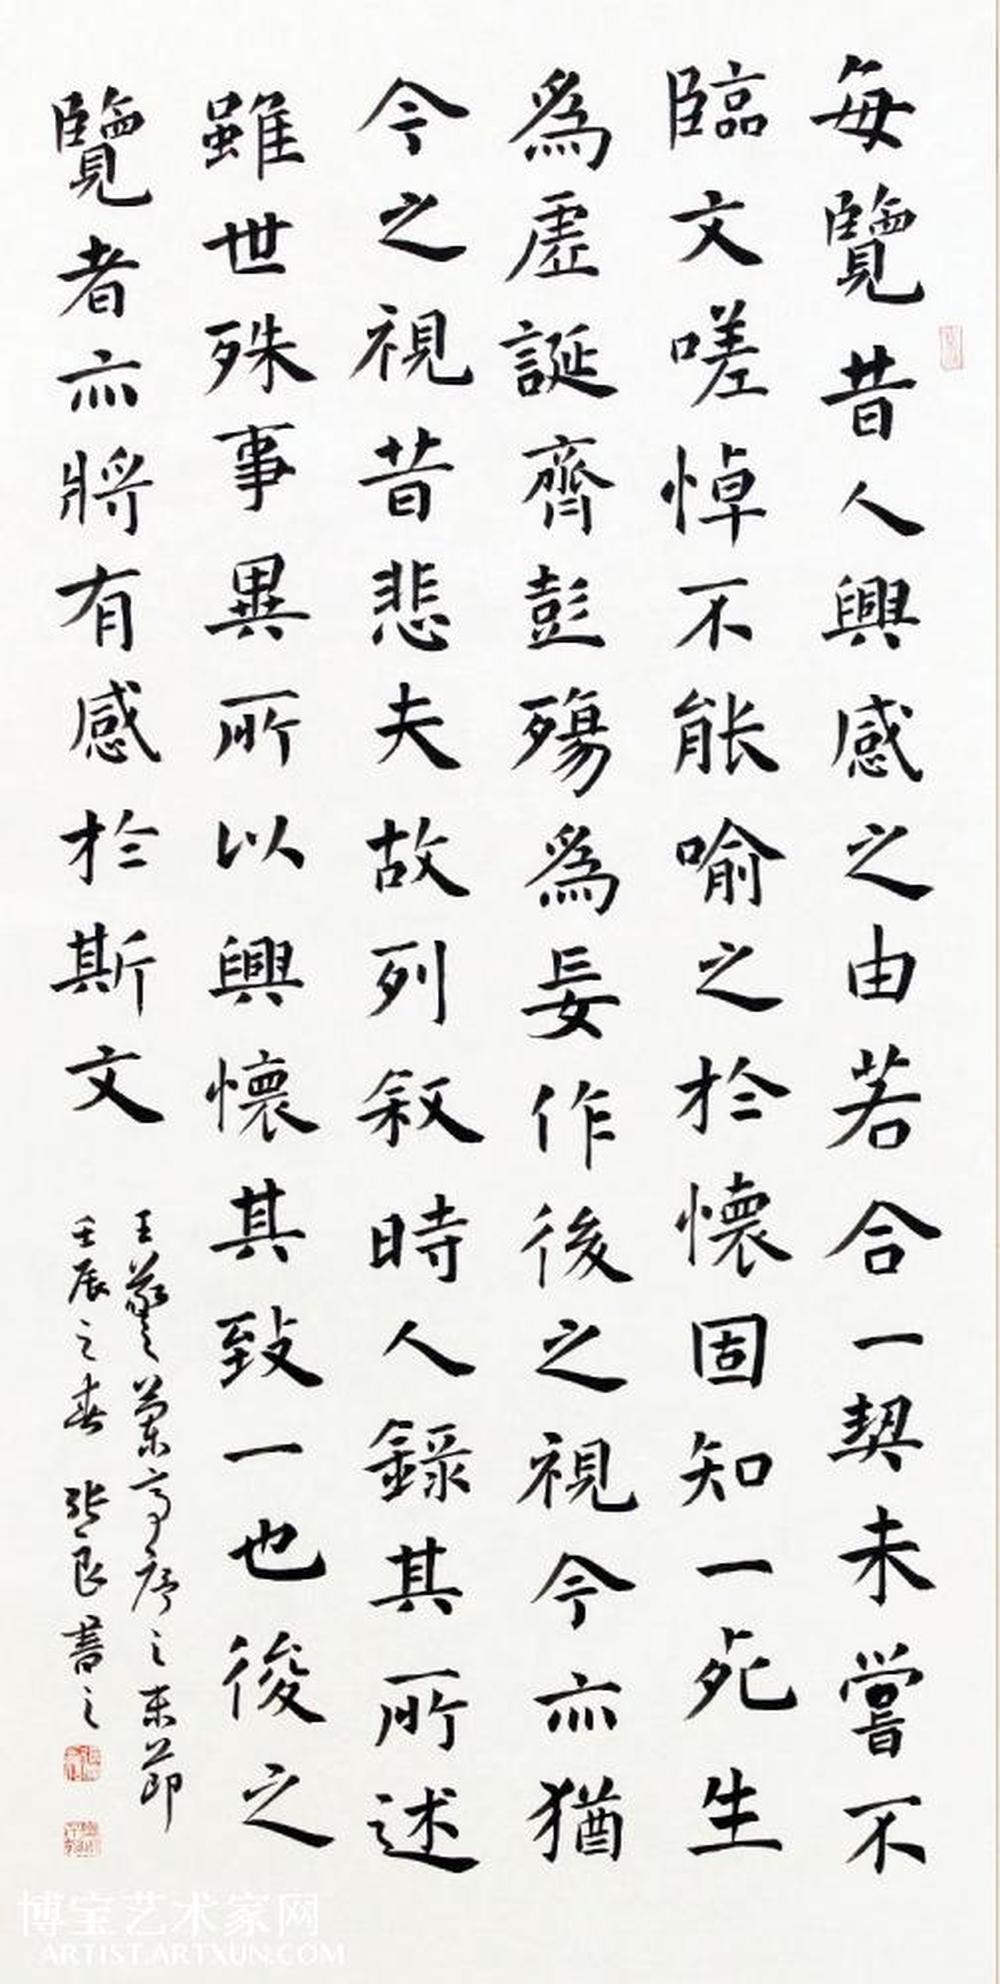 每覽昔人興感之由若合一契未嘗不
臨文嗟悼不能喻之於懷固知一死生
為虛誕齊彭殤為妄作後之視今亦猶
今之視昔悲夫故列敘時人錄其所述
雖世殊事異所以興懷其致一也後之
覽者亦將有感於斯文
王羲之蘭亭序之末節
壬辰之春 張良書之
博宝艺术家网
ARTIST.ARTXUN.COM